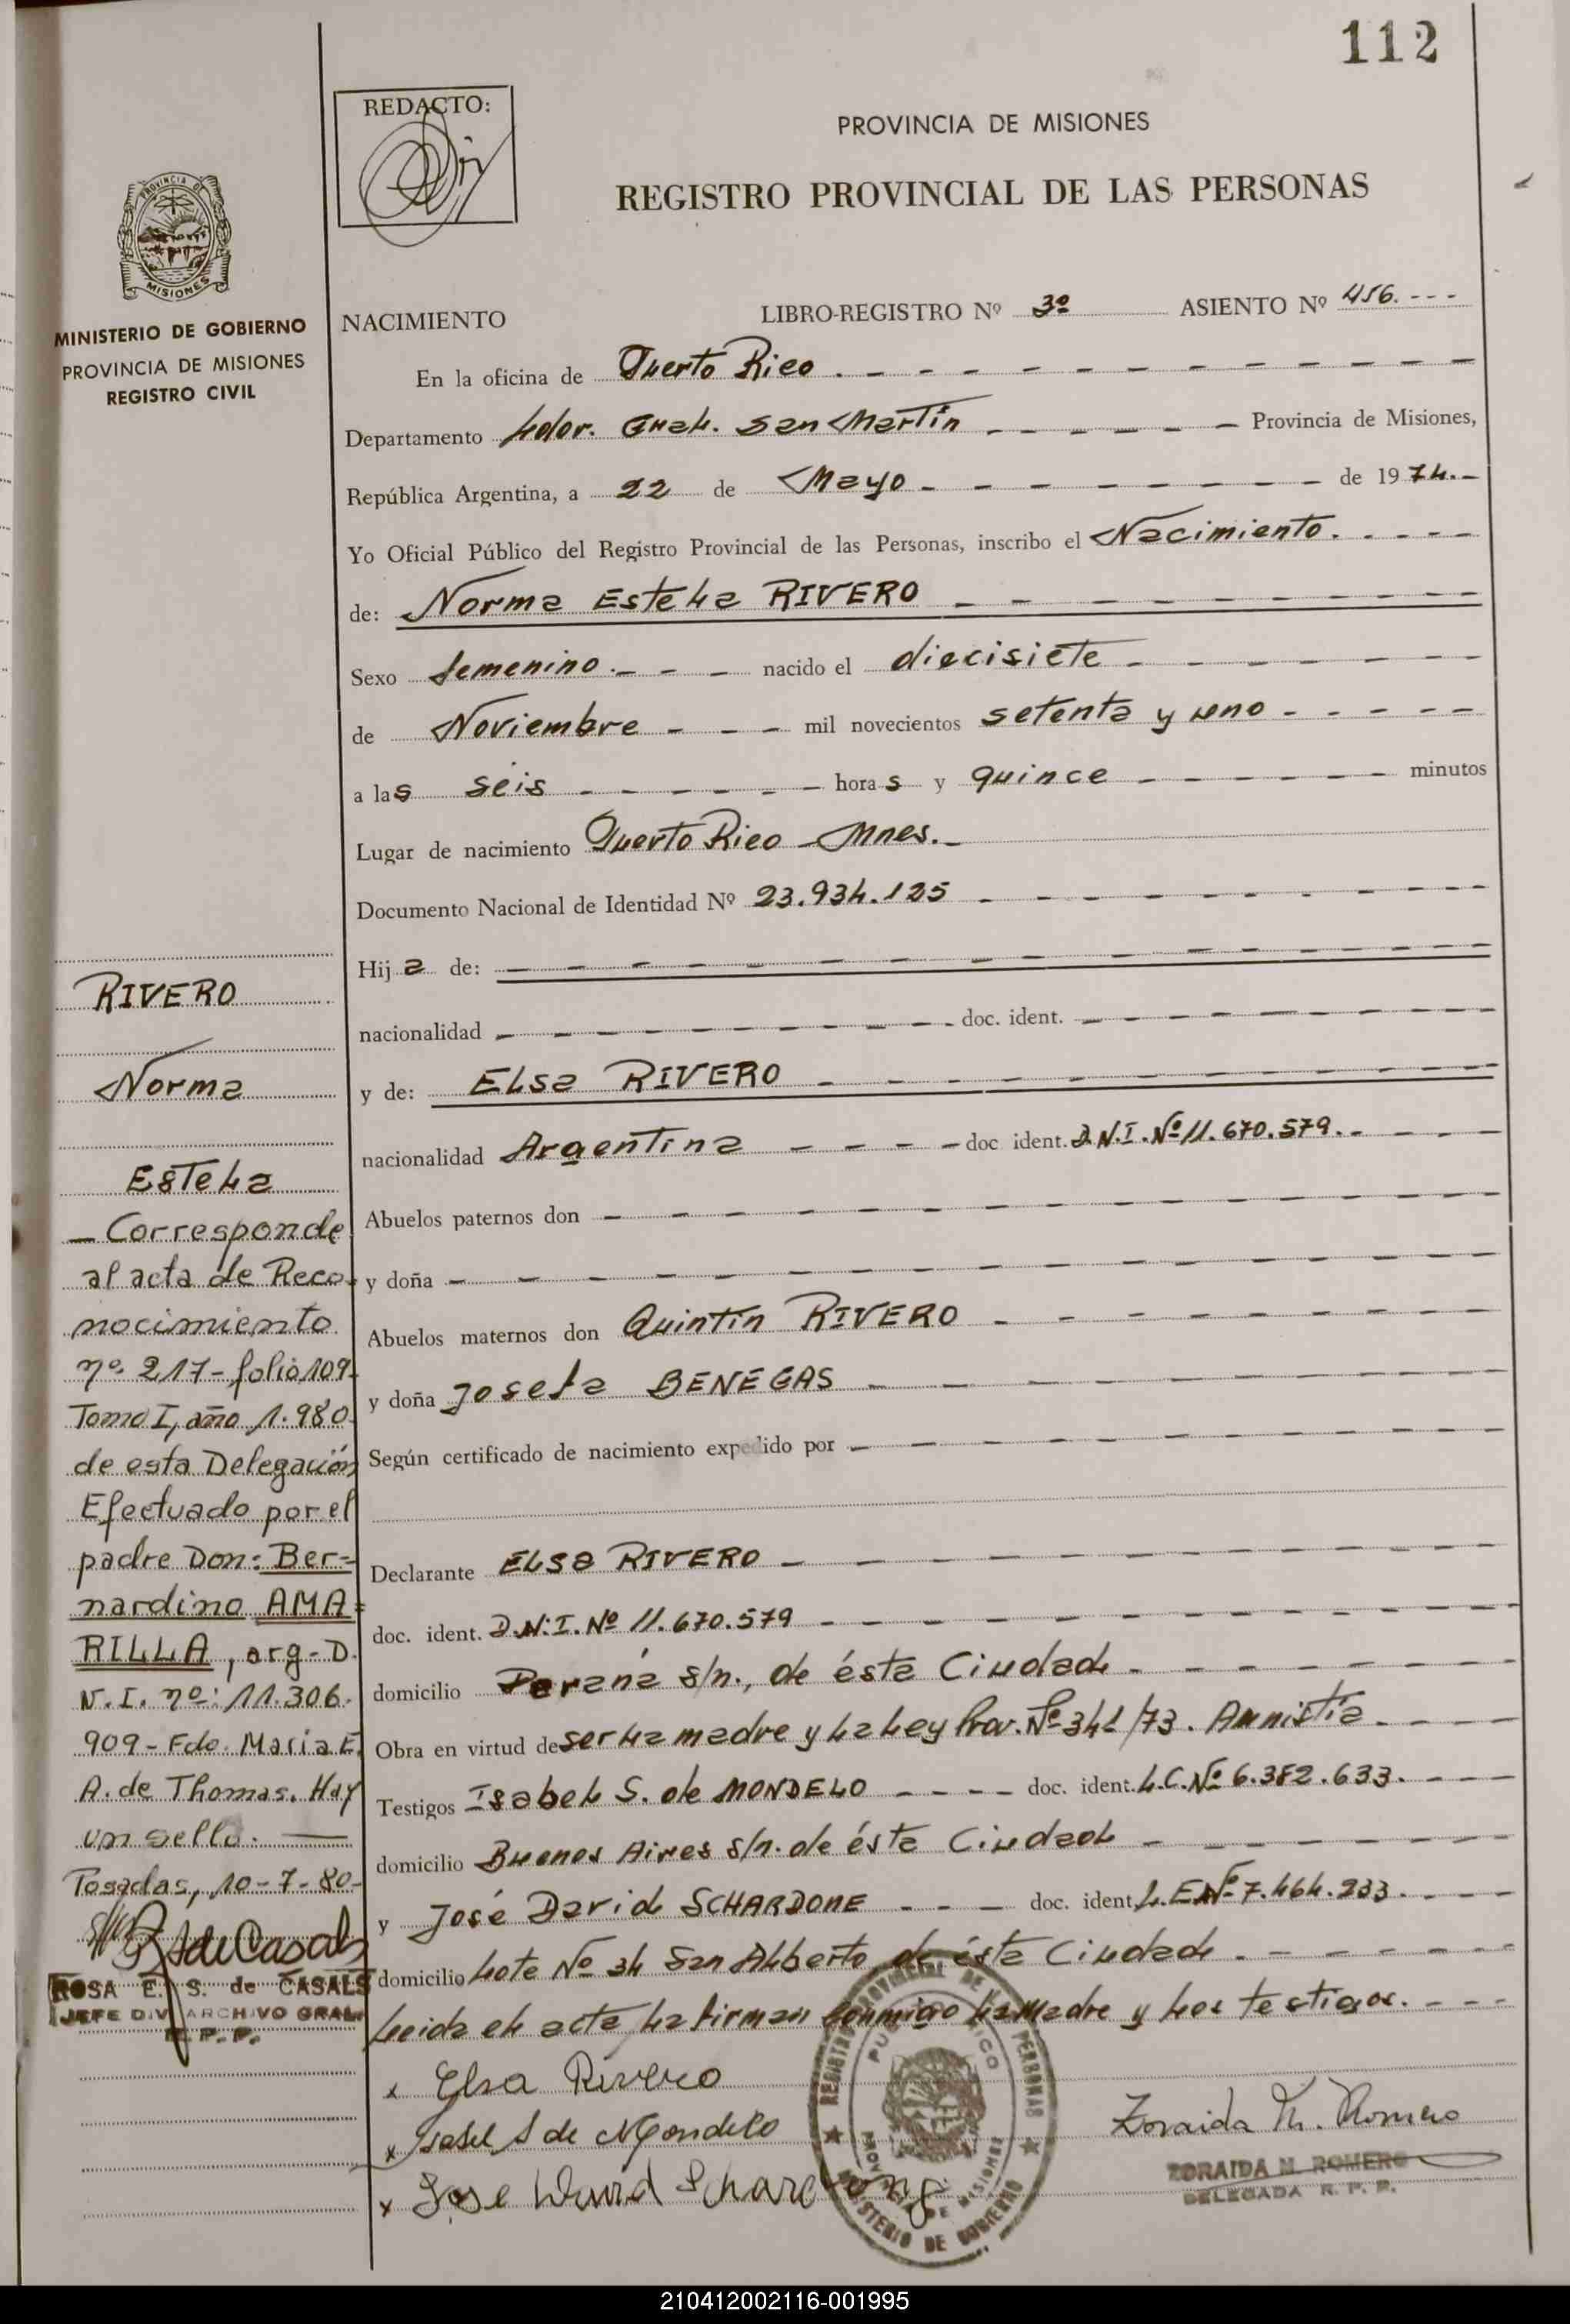 112
REDACTO:
PROVINCIA DE MISIONES
REGISTRO PROVINCIAL DE LAS PERSONAS
PROVINCIA DE
MISIONES
MINISTERIO DE GOBIERNO
PROVINCIA DE MISIONES
REGISTRO CIVIL
NACIMIENTO LIBRO-REGISTRO Nº 3º ASIENTO Nº 456. - - -
En la oficina de Puerto Rico . - - - - - - - - - - -
Departamento Ldor. Gral. San Martín - - - - - Provincia de Misiones,
República Argentina, a 22 de Mayo - - - - - - - - de 1974.-
Yo Oficial Público del Registro Provincial de las Personas, inscribo el Nacimiento. - - - -
de: Norma Estela RIVERO - - - - - - - -
Sexo femenino. - - - nacido el diecisiete - - - - - - -
de Noviembre - - - mil novecientos setenta y uno - - - - -
a las seis - - - - - - horas y quince - - - - - - minutos
Lugar de nacimiento Puerto Rico - Mnes.-
Documento Nacional de Identidad Nº 23.934.125 - - - - - - - -
Hija de: - - - - - - - - - - - - -
nacionalidad - - - - - - - - - doc. ident. - - - - - - - -
y de: ELSa RIVERO - - - - - - - - - -
nacionalidad Argentina - - - - doc ident. D.N.I. Nº 11.670.579. - - - -
Abuelos paternos don - - - - - - - - - - - - -
y doña - - - - - - - - - - - - - -
Abuelos maternos don Quintín RIVERO - - - - - - - -
y doña Josefa BENEGAS - - - - - - - - -
Según certificado de nacimiento expedido por - - - - - - - - -
Declarante ELSa RIVERO - - - - - - - - - -
doc. ident. D.N.I. Nº 11.670.579 - - - - - - - - - -
domicilio Paraná s/n., de ésta Ciudad - - - - - - -
Obra en virtud de ser la madre y la Ley Prov. Nº 341/73. Amnistía. - - -
Testigos Isabel S. de MONDELO - - - - doc. ident. L.C. Nº 6.382.633. - - -
domicilio Buenos Aires s/n. de ésta Ciudad - - - - - - -
y José David SCHARDONE - - - doc. ident. L.E. Nº 7.464.233. - - -
domicilio Lote Nº 34 San Alberto, de ésta Ciudad. - - - - - -
Leida el acta, la firman conmigo la Madre y los testigos. - - -
x Elsa Rivero
x Isabel S de Mondelo
x Jose David Schardong
Zoraida M. Romero
ZORAIDA M. ROMERO
DELEGADA R. P. P.
REGISTRO PROVINCIAL DE LAS PERSONAS
MINISTERIO DE GOBIERNO
PROVINCIA DE MISIONES
RIVERO
Norma
Estela
- Corresponde
al acta de Reco-
nocimiento
nº 217- folio 109-
Tomo I, año 1.980
de esta Delegación
Efectuado por el
padre Don: Ber=
nardino AMA=
RILLA, arg- D.
N.I. nº: 11.306.
909- Fdo. Maria E.
A. de Thomas. Hay
un sello. -
Posadas, 10-7-80-
de Casals
ROSA E. S. de CASALS
JEFE DIV ARCHIVO GRAL.
R. P. P.
210412002116-001995